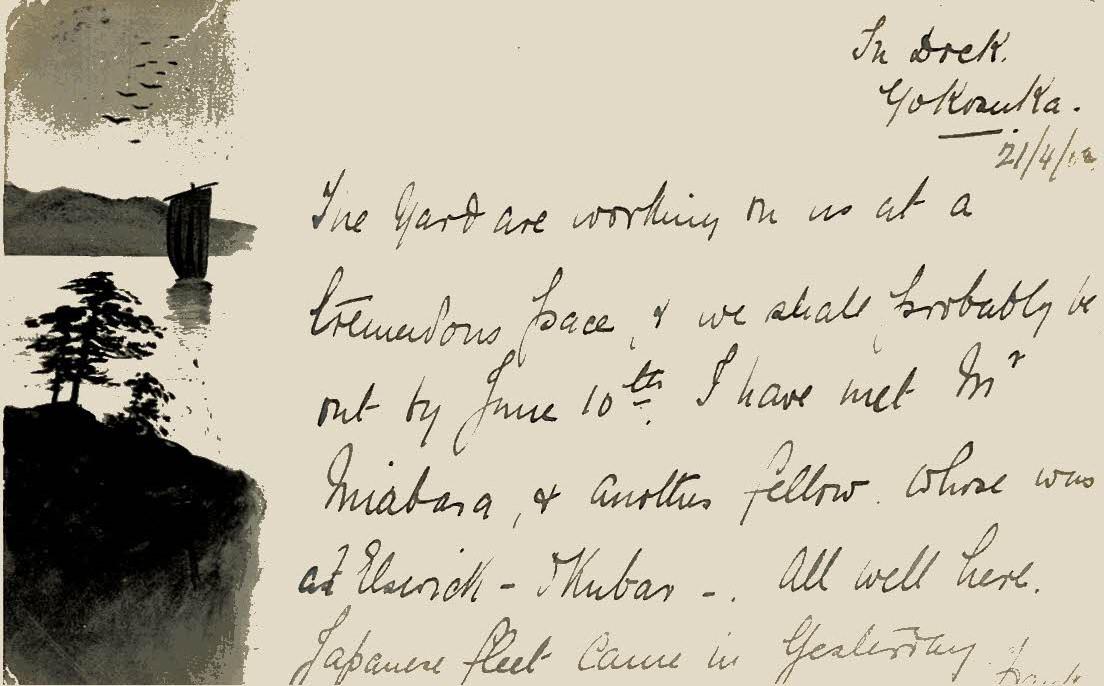 In Dock.
Yokosuka.
21/4/
The Yard are working on us at a
tremendous pace, & we shall probably be
out by June 10th. I have met Mr
Miabara, & another fellow. whose was
at Elswick - - . All well here.
Japanese fleet came in Yesterday Frank